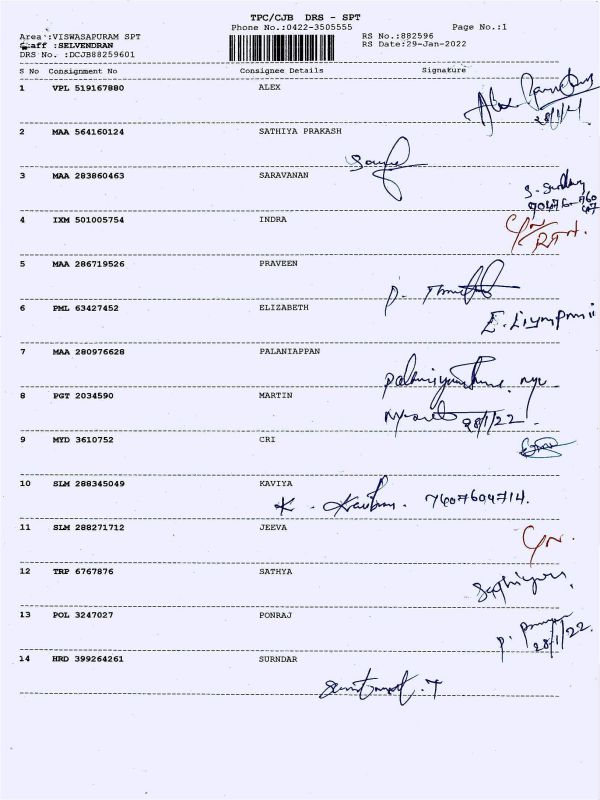 TPC/CJB DRS - SPT
Phone No.:0422-3505555 Page No.:1
Area :VISWASAPURAM SPT
Staff :SELVENDRAN
DRS No. :DCJB88259601
RS No.:882596
RS Date:29-Jan-2022
S No Consignment No Consignee Details Signature
1 VPL 519167880 ALEX
Alex
28/1/
2 MAA 564160124 SATHIYA PRAKASH
3 MAA 283860463 SARAVANAN
4 IXM 501005754 INDRA
C/N
5 MAA 286719526 PRAVEEN
P.
6 PML 63427452 ELIZABETH
E.
7 MAA 280976628 PALANIAPPAN
8 PGT 2034590 MARTIN
28/1/22.
9 MYD 3610752 CRI
10 SLM 288345049 KAVIYA
K. 7607604714.
11 SLM 288271712 JEEVA
C/N.
12 TRP 6767876 SATHYA
13 POL 3247027 PONRAJ
P.
28/1/22.
14 HRD 399264261 SURNDAR